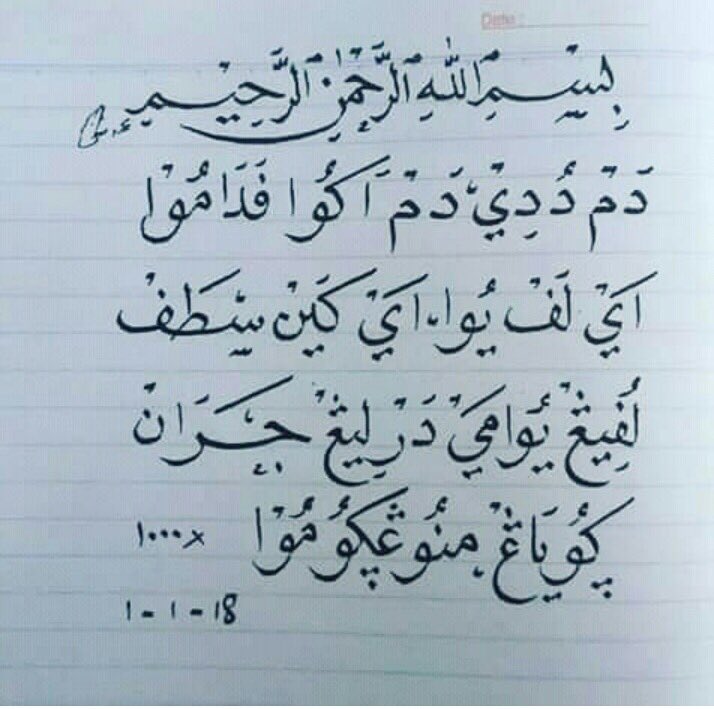 Date :
بِسْمِ اللّٰهِ الرَّحْمٰنِ الرَّحِيْمِ
دَمْ دُدِيْ، دَمْ اَكُوْا فَدَامُوْا
اَيْ لَفْ يُوْا، اَيْ كَيْنْ سْطَفْ
لُفِيْڠْ يُوْامَيْ دَرْلِيْڠْ جَرَانْ
كُوْيَاڠْ مِنُوْڠْكُوْمُوْا
١٠٠٠x
1-1-18